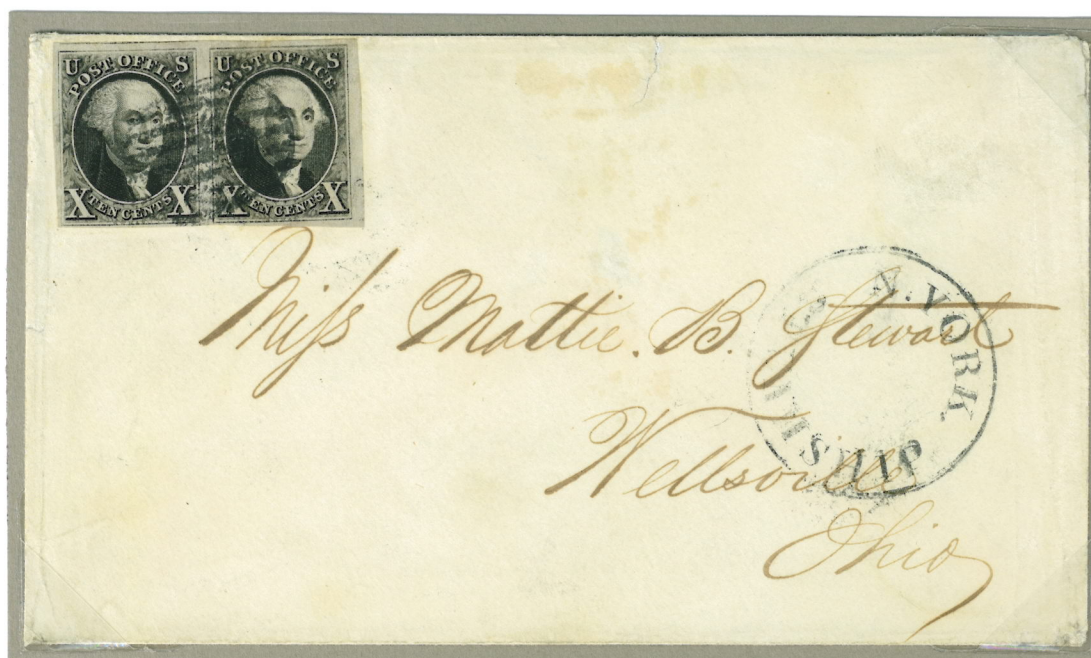 U S
POST OFFICE
X TEN CENTS X
U S
POST OFFICE
X TEN CENTS X
Miſs Mattie. B. Stewart
Wellsville
Ohio
N. YORK.
STEAMSHIP